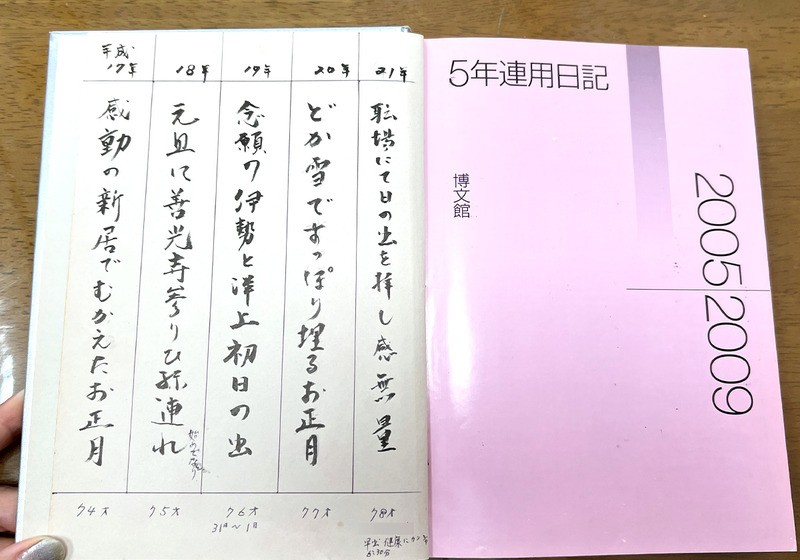 平成
17年
18年
19年
20年
21年
感動の新居でむかえたお正月
元旦に善光寺参りひ孫連れ
念願の伊勢と洋上初日の出
どか雪ですっぽり埋るお正月
耺場にて日の出を拝し感無量
74才
75才
76才
31日〜1日
77才
78才
早出 健康に
5年連用日記
博文館
2005
2009